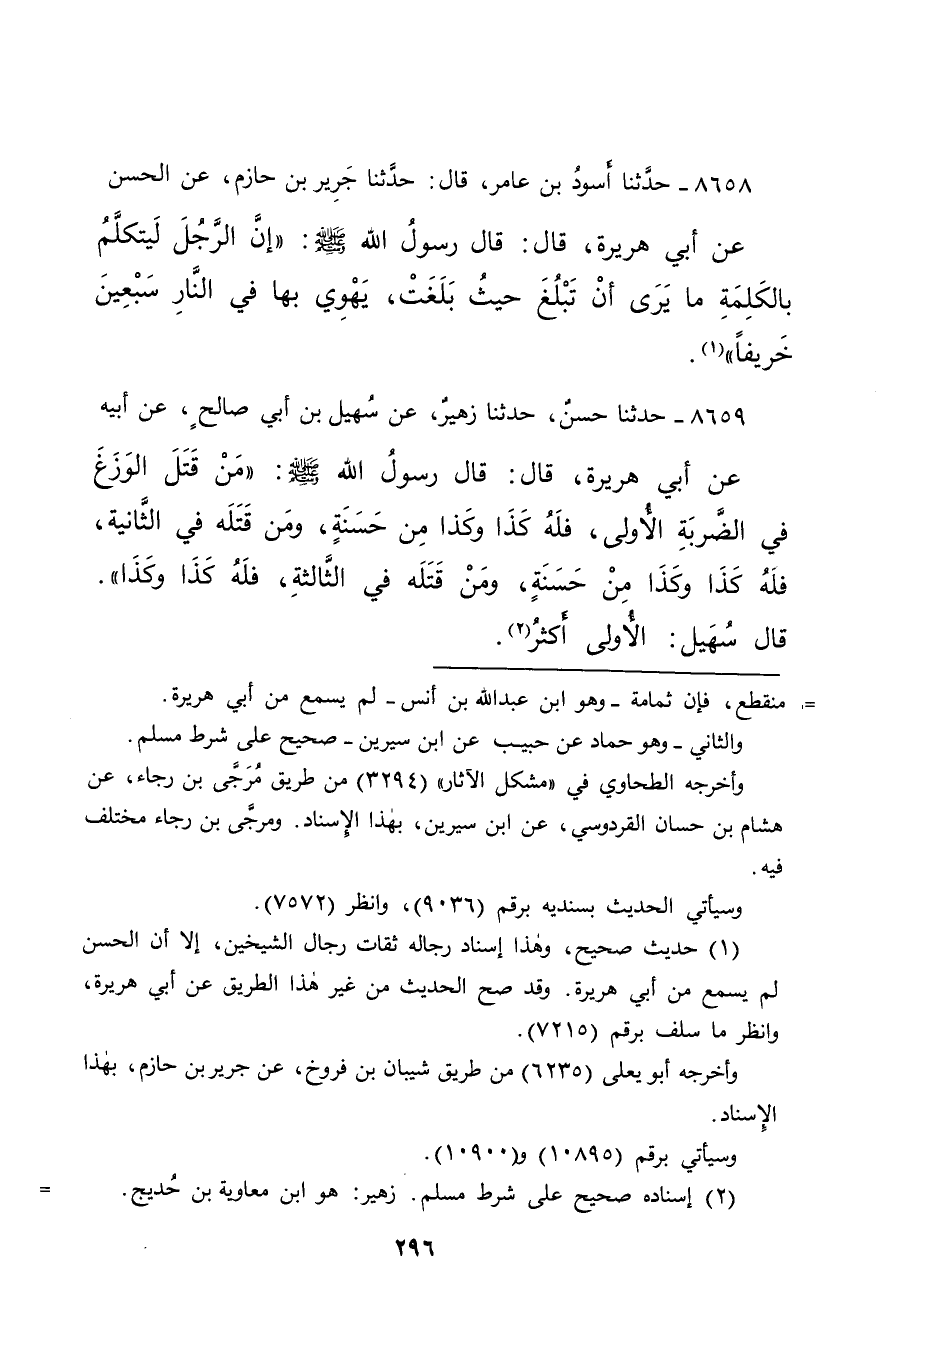 ٨٦٥٨ ـ حدَّثنا أَسودُ بن عامر، قال: حدَّثنا جَرِير بن حازم، عن الحسن
عن أبي هريرة، قال: قال رسولُ الله ﷺ: «إنَّ الرَّجُلَ لَيتكلَّمُ
بالكَلِمَةِ ما يَرَى أنْ تَبْلُغَ حيثُ بَلَغَتْ، يَهْوِي بها في النَّارِ سَبْعِينَ
خَريفاً»(١).
٨٦٥٩ ـ حدثنا حسنٌ، حدثنا زهيرٌ، عن سُهيل بن أبي صالحٍ، عن أبيه
عن أبي هريرة، قال: قال رسولُ الله ﷺ: «مَنْ قَتَلَ الوَزَغَ
في الضَّربَةِ الأُولى، فلَهُ كَذَا وكَذا مِن حَسَنَةٍ، ومَن قَتَلَه في الثَّانية،
فلَهُ كَذَا وكَذَا مِنْ حَسَنَةٍ، ومَنْ قَتَلَه في الثَّالثةِ، فلَهُ كَذَا وكَذَا».
قال سُهَيل: الأُولى أَكثرُ(٢).
= منقطع، فإن ثمامة ـ وهو ابن عبدالله بن أنس ـ لم يسمع من أبي هريرة.
والثاني ـ وهو حماد عن حبيب عن ابن سيرين ـ صحيح على شرط مسلم.
وأخرجه الطحاوي في «مشكل الآثار» (٣٢٩٤) من طريق مُرَجَّى بن رجاء، عن
هشام بن حسان القردوسي، عن ابن سيرين، بهٰذا الإِسناد. ومرجَّى بن رجاء مختلف
فيه.
وسيأتي الحديث بسنديه برقم (٩٠٣٦)، وانظر (٧٥٧٢).
(١) حديث صحيح، وهٰذا إسناد رجاله ثقات رجال الشيخين، إلا أن الحسن
لم يسمع من أبي هريرة. وقد صح الحديث من غير هٰذا الطريق عن أبي هريرة،
وانظر ما سلف برقم (٧٢١٥).
وأخرجه أبو يعلى (٦٢٣٥) من طريق شيبان بن فروخ، عن جرير بن حازم، بهٰذا
الإِسناد.
وسيأتي برقم (١٠٨٩٥) و(١٠٩٠٠).
(٢) إسناده صحيح على شرط مسلم. زهير: هو ابن معاوية بن حُديج. =
٢٩٦